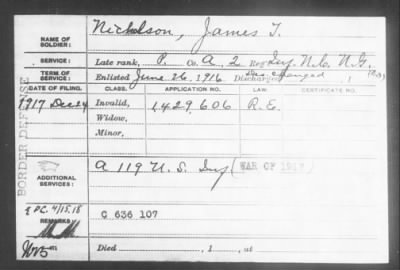 NAME OF SOLDIER: Nickolson, James T.
SERVICE: Late rank, P. Co. A, 2 Reg't Inf. N.C. N.G.
TERM OF SERVICE: Enlisted June 26, 1916. Discharged Des. changed, 1
DATE OF FILING. CLASS. APPLICATION NO. LAW. CERTIFICATE NO.
1917 Dec 24 Invalid, 1429,606 R.E.
Widow,
Minor,
BORDER DEFENSE
ADDITIONAL SERVICES: A 119 U.S. Inf (WAR OF 1917)
E P.C. 4/15.18
REMARKS: C 636 107
Died , 1 , at